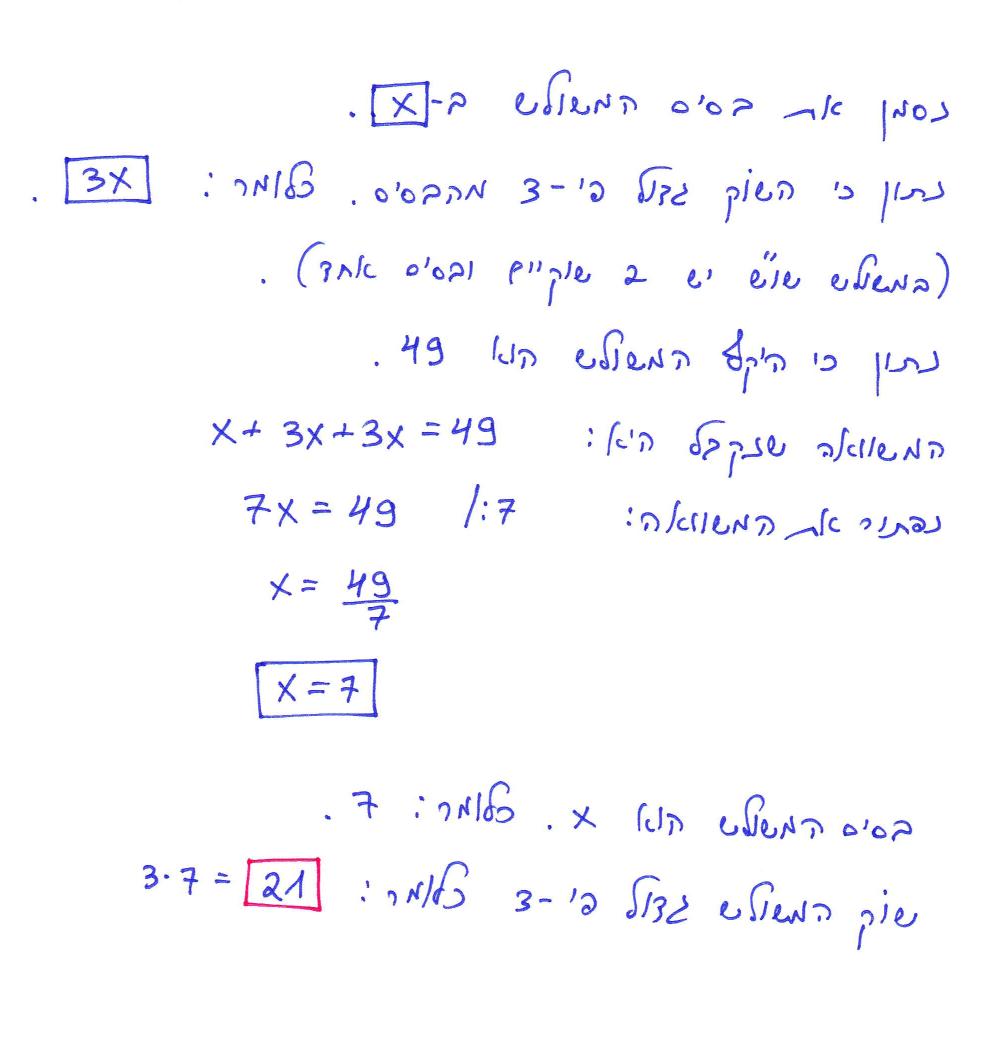 נסמן את בסיס המשולש ב-x.
נתון כי השוק גדול פי-3 מהבסיס. כלומר: 3x.
(במשולש שו"ש יש 2 שוקיים ובסיס אחד).
נתון כי היקף המשולש הוא 49.
המשוואה שנקבל היא: x+3x+3x=49
נפתור את המשוואה: 7x=49 /:7
x=49/7
x=7
בסיס המשולש הוא x. כלומר: 7.
שוק המשולש גדול פי-3 כלומר: 3·7=21